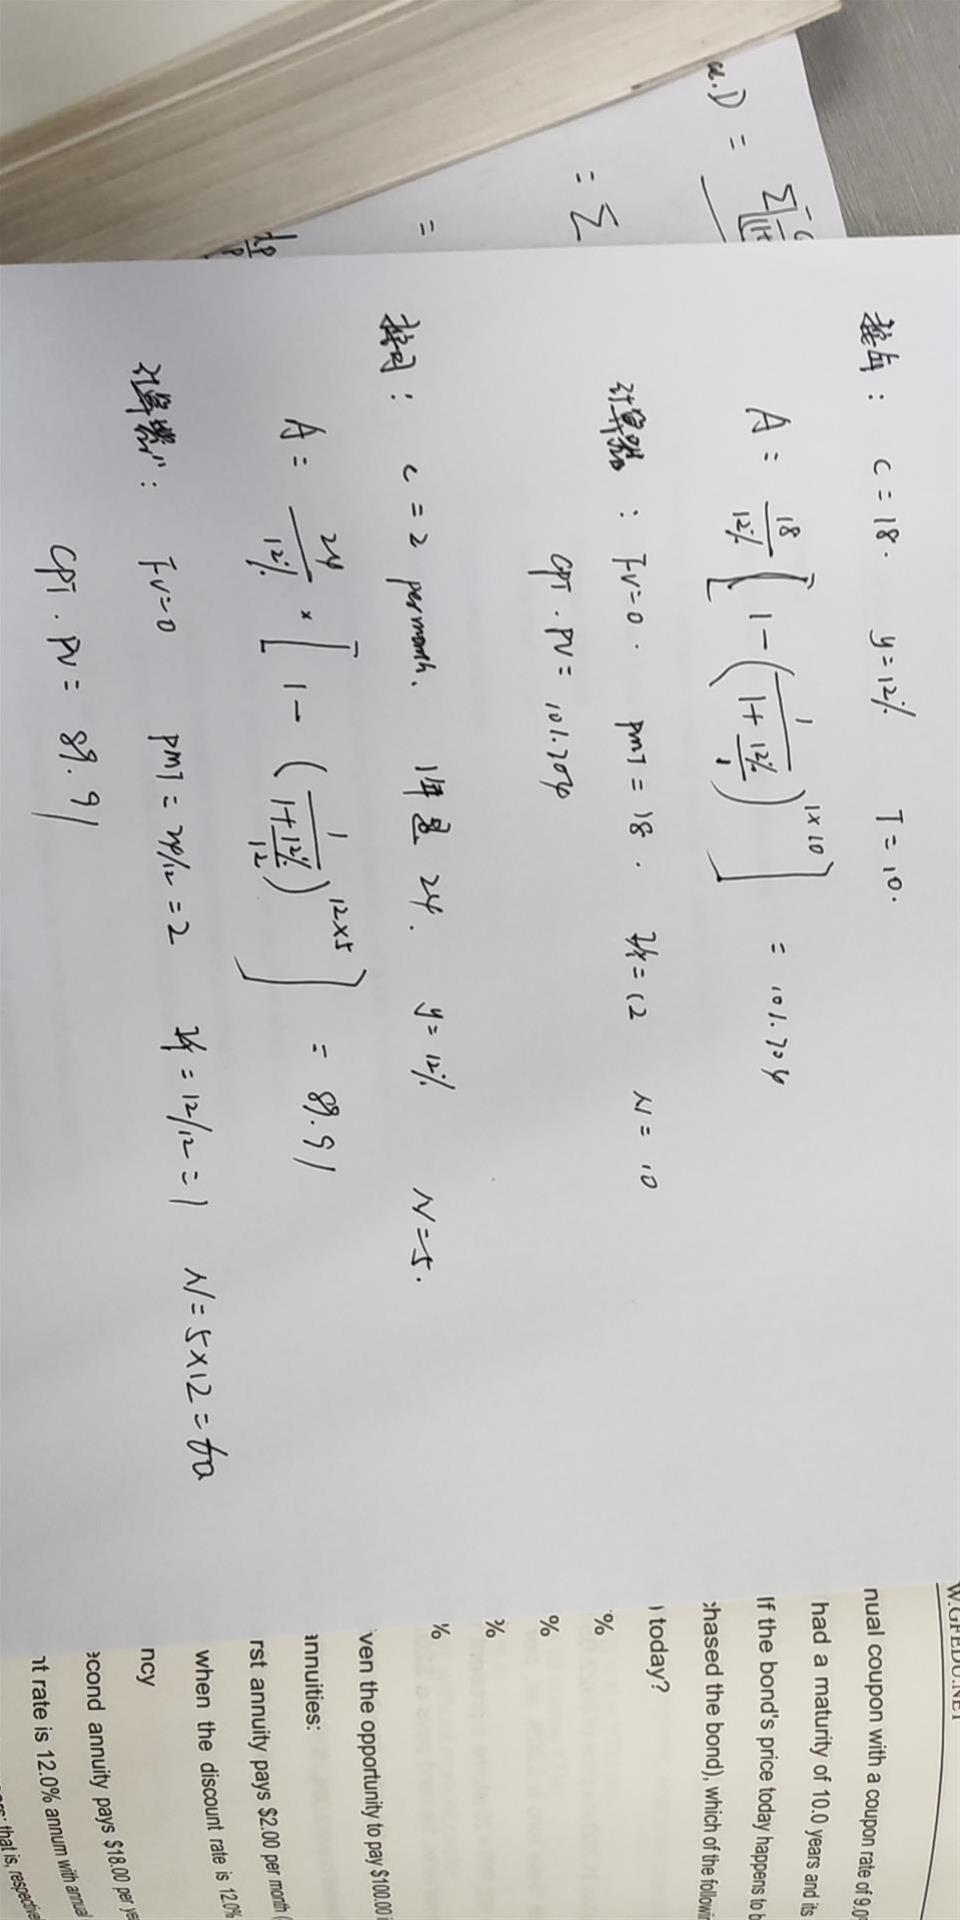 u.D =
= Σ
=
按年： C = 18. y = 12% T = 10.
A = 18/12% [ 1 - ( 1/(1 + 12%/1) )^(1×10) ] = 101.704
计算器： FV = 0. PMT = 18. I/Y = 12 N = 10
CPT. PV = 101.704
按月： C = 2 per month, 1年是 24. y = 12% N = 5.
A = 24/12% × [ 1 - ( 1/(1 + 12%/12) )^(12×5) ] = 89.91
计算器： FV = 0 PMT = 24/12 = 2 I/Y = 12/12 = 1 N = 5×12 = 60
CPT. PV = 89.91
W.GFEDU.NET
nual coupon with a coupon rate of 9.0
had a maturity of 10.0 years and its
If the bond's price today happens to b
chased the bond), which of the followin
) today?
%
%
%
%
ven the opportunity to pay $100.00 i
annuities:
rst annuity pays $2.00 per month (
when the discount rate is 12.0%
ncy
econd annuity pays $18.00 per ye
nt rate is 12.0% annum with annual
that is, respective